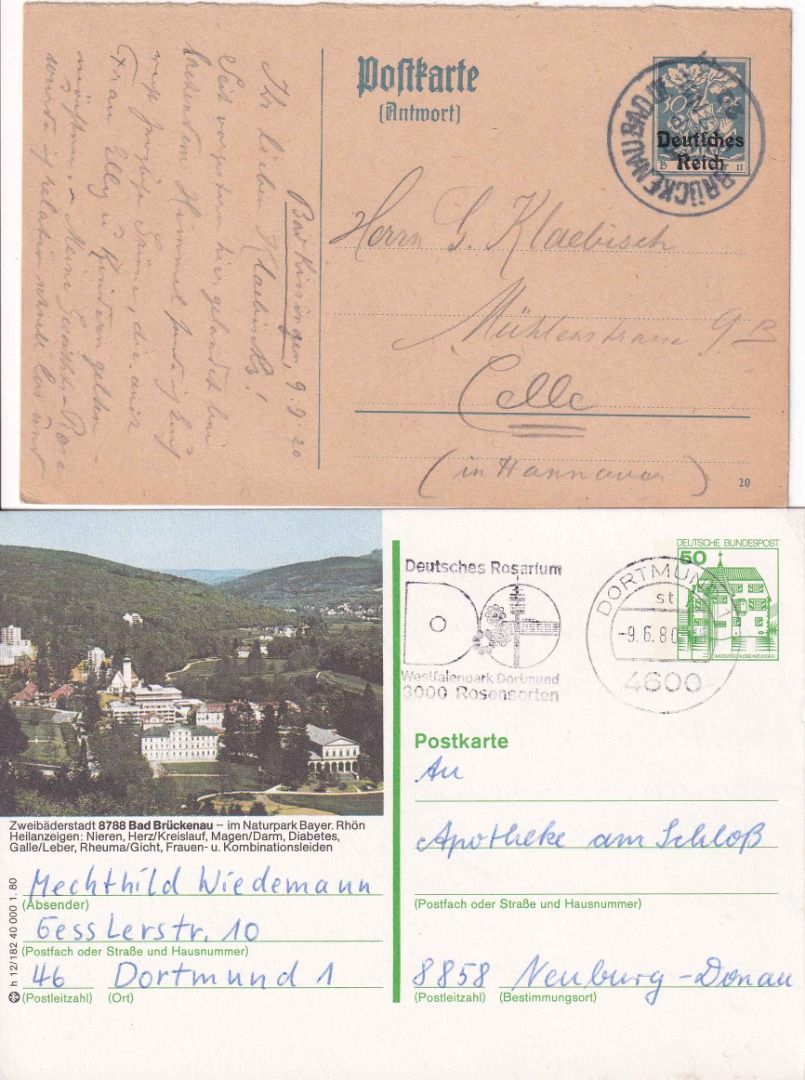 Postkarte
(Antwort)
30
Deutsches
Reich
BRÜCKENAU BAD
Bad Kissingen, 9.9.20
Ihr lieben Klaebischs!
Seit vorgestern hier gelandet bei
lachendem Himmel
Grüße, die auch
Frau Elly u. Kindern gelten
Meine
Herrn G. Klaebisch
Mühlenstrasse 9B
Celle
(in Hannover)
20
Deutsches Rosarium
Westfalenpark Dortmund
3000 Rosensorten
DORTMUND
st
-9.6.80
4600
DEUTSCHE BUNDESPOST
50
WASSERSCHLOSS INZLINGEN
Zweibäderstadt 8788 Bad Brückenau – im Naturpark Bayer. Rhön
Heilanzeigen: Nieren, Herz/Kreislauf, Magen/Darm, Diabetes,
Galle/Leber, Rheuma/Gicht, Frauen- u. Kombinationsleiden
Mechthild Wiedemann
(Absender)
Gesslerstr. 10
(Postfach oder Straße und Hausnummer)
46 Dortmund 1
(Postleitzahl) (Ort)
h 12/182 40 000 1. 80
Postkarte
An
Apotheke am Schloß
(Postfach oder Straße und Hausnummer)
8858 Neuburg-Donau
(Postleitzahl) (Bestimmungsort)